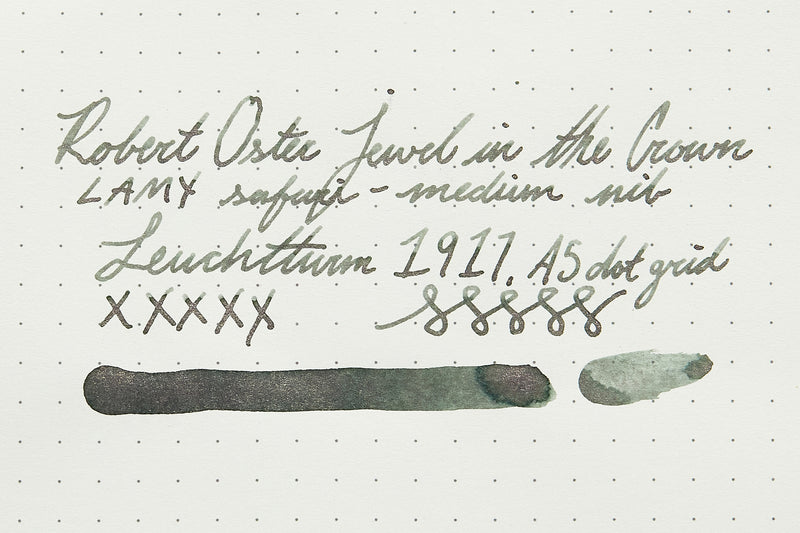 Robert Oster Jewel in the Crown
LAMY safari - medium nib
Leuchtturm 1917, A5 dot grid
XXXXX